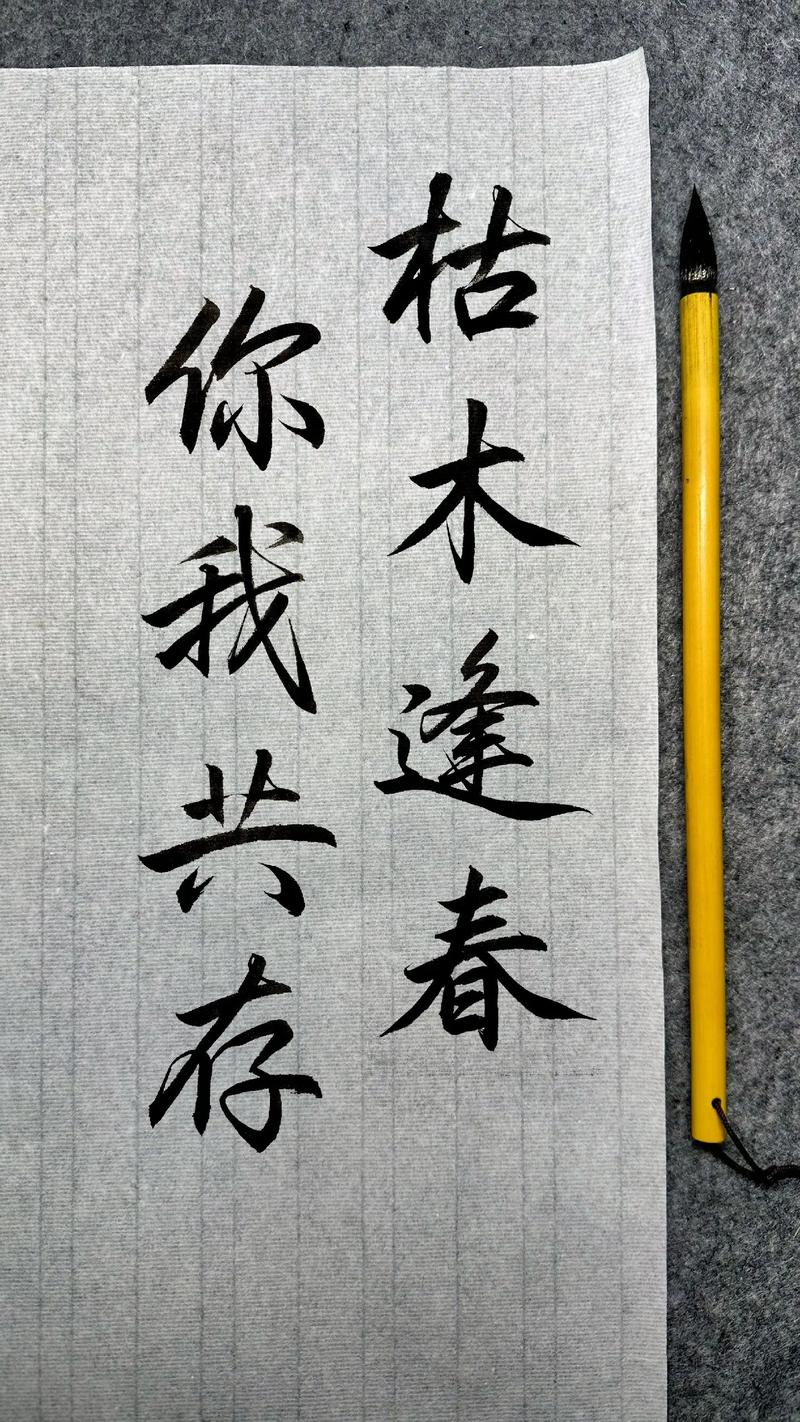 枯木逢春
你我共存